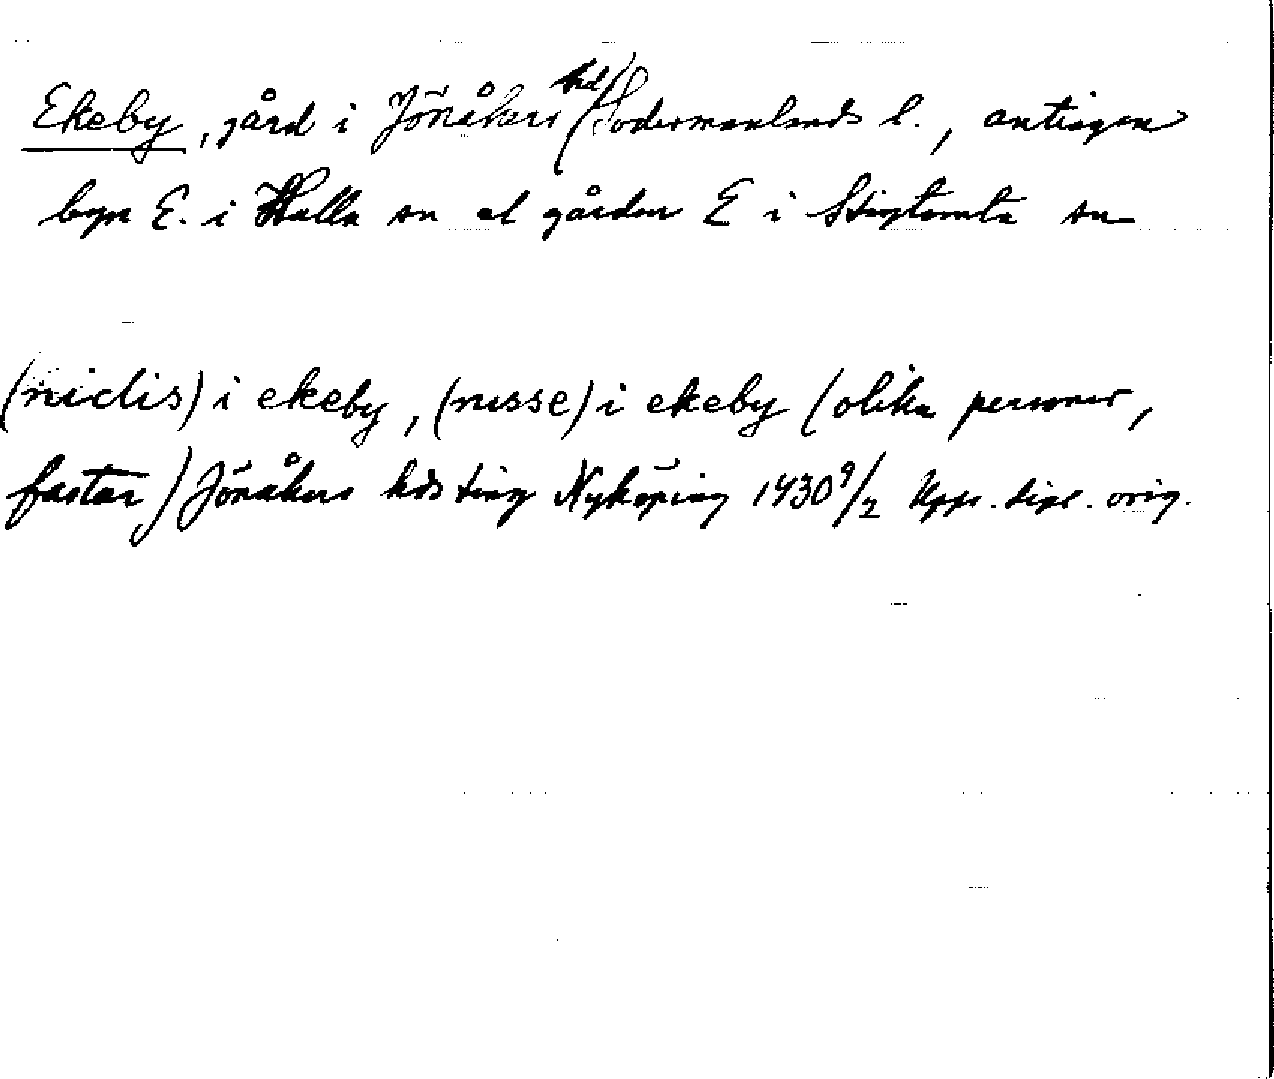 Ekeby, gård i Jönåkers hd Södermanlands l., antingen
byn E. i Halla sn el gården E i Stigtomta sn
(niclis) i ekeby, (nisse) i ekeby (olika personer,
fastar) Jönåkers hds ting Nyköping 1430 9/2 Upps. dipl. orig.